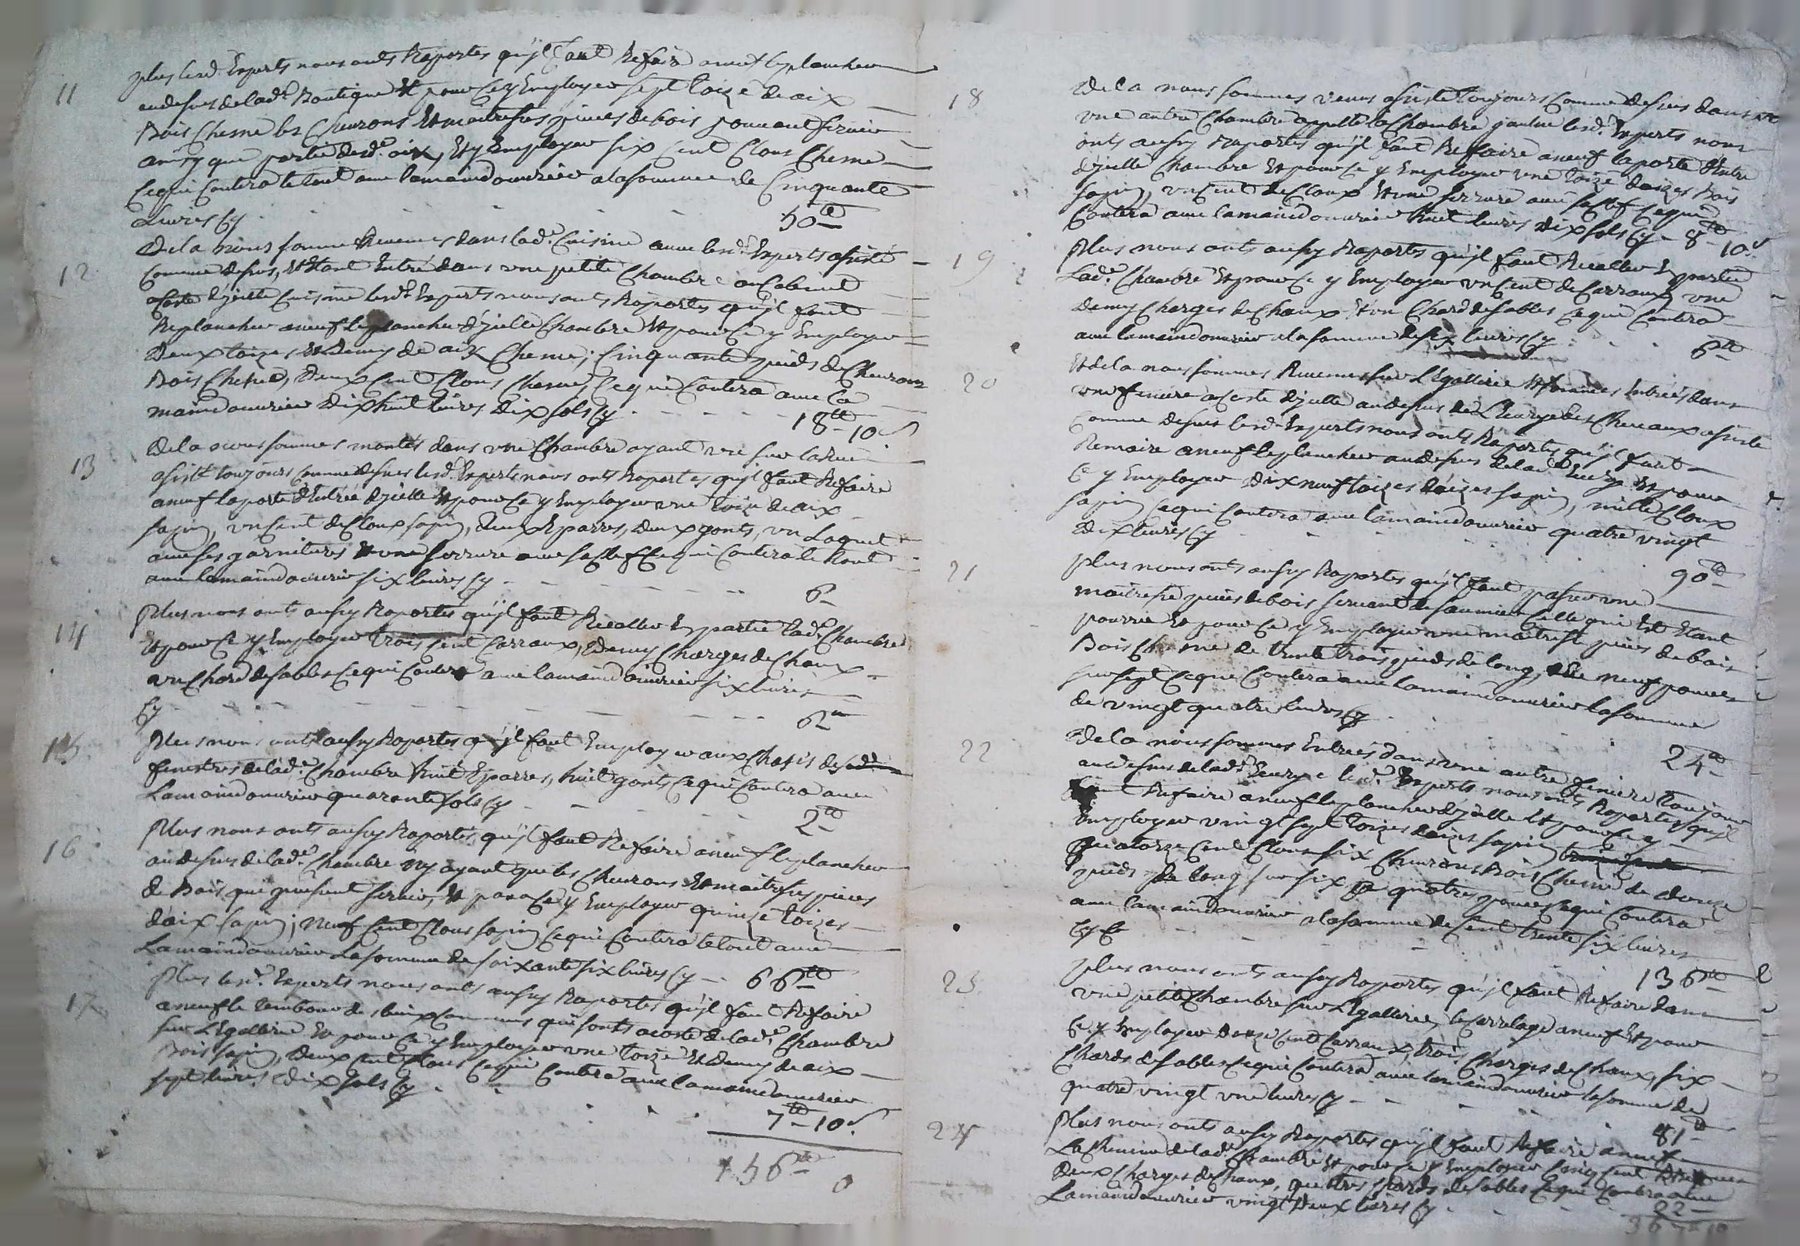 11 plus lesd. Experts nous onts Raportes qu'jl faut Refaire aneuf leplancher
audesus de lad.e Boutique Et pour ce y Employer sept toize de aix
Bois Chesne les Cheurons Et maitreses pieces de bois pouuant seruir
ainsy que partie desd. aix, Et y Employer six cent Clous Chesne
Ce qui Coutera le tout auec lamaindouurier alasomme de Cinquante
Liures Cy 50tt
12 De la nous somme Reuenues dans lad.e Cuisine auec lesd. Experts asisté
Comme desus, Et Etant Entré dans vne petite Chambre ou Cabinet
acosté d'jcelle Cuisine lesd. Experts nous onts Raportes qu'jl faut
Replancher aneuf leplancher d'jcelle Chambre Et pour Ce y Employer
Deux toizes Et Demy de aix Chesne, Cinquante pieds de Cheurons
Bois Chesne, Deux Cent Clous Chesne, Ce qui Coutera auec la
maindouurier Dixhuit liures Dix sols Cy 18tt 10s
13 De la nous sommes montés dans vne Chambre ayant vüe sur la Rue
asisté toujours Comme desus lesd. Experts nous onts Raportes qu'jl faut Refaire
aneuf laporte d'Entrée d'jcelle Et pour Ce y Employer vne toize de aix
sapin, vn Cent de Cloux sapin, deux Eparres, deux gonts, vn Loquet
auec ses garnitures Et vne serrure auec sa Clef Ce qui Coutera le tout
auec lamaindouurier six liures Cy 6
14 Plus nous onts ausy Raportes qu'jl faut Recaller En partie lad.e Chambre
Et pour Ce y Employer trois Cent Carraux, Demy Charges de Chaux
vn Chard de sables Ce qui Coutera auec lamaindouurier six liures
Cy 6tt
15 Plus nous onts ausy Raportes qu'jl faut Employer aux Chasis desd.
fenestres de lad.e Chambre huit Eparres, huit gonts Ce qui Coutera auec
Lamaindouurier quarante sols Cy 2tt
16 Plus nous onts ausy Raportes qu'jl faut Refaire aneuf leplancher
audesus de lad.e Chambre N'y ayant que les Cheurons Et maitreses pieces
de Bois qui puisent seruir, Et pour Ce y Employer quinze toizes
daix sapin; Neuf Cent Clous sapin Ce qui Coutera le tout auec
Lamaindouurier Lasomme de soixante six liures Cy 66tt
17 Plus lesd. Experts nous onts ausy Raportes qu'jl faut Refaire
aneuf le tembour des lieux Communs qui sonts acosté de lad.e Chambre
sur L'Egallerie Et pour Ce y Employer vne toize Et Demy de aix
Bois sapin, Deux Cent Clous Ce qui Coutera auec lamaindouurier
sept liures Dix sols Cy
7tt 10s.
156tt 0
18 De la nous sommes venus asisté toujours Comme desus dans
vne autre Chambre apellé la Chambre jaulne lesd. Experts nous
onts ausy Raportes qu'jl faut Refaire aneuf laporte d'Entre
d'jcelle Chambre Et pour Ce y Employer vne toize daizes Bois
sapin, vn Cent de Cloux Et vne serrure auec sa Clef Ce qui
Coutera auec lamaindouurier huit liures Dix sols Cy 8tt 10s.
19 Plus nous onts ausy Raportes qu'jl faut Recaller En partie
Lad.e Chambre Et pour Ce y Employer vn Cent de Carraux, vne
Demy Charges de Chaux Et vn Chard de sables Ce qui Coutera
auec lamaindouurier alasomme de six liures Cy 6tt
20 Et de la nous sommes Reuenus sur L'Egallerie Et sommes Entrés dans
vne feniere acosté d'jcelle audesus de L'Ecurye des Cheuaux asisté
Comme desus lesd. Experts nous onts Raportes qu'jl faut
Remaire aneuf leplancher audesus de lad.e Ecurye Et pour
Ce y Employer Dix neuf toizes daizes sapin, mille Cloux
sapin Ce qui Coutera auec lamaindouurier quatre vingt
Dix liures Cy 90tt
21 plus nous onts ausy Raportes qu'jl faut passer vne
maitrese pieces de bois seruant de saumier Celle qui Est Etant
pourrie Et pour Ce y Employer vne maitrese pieces de bois
Bois Chesne de trente trois pieds de long, de neuf pouces
sur sept Ce qui Coutera auec lamaindouurier lasomme
de vingt quatre liures Cy 24tt
22 De la nous sommes Entrés dans vne autre feniere toujours
audesus de lad.e Ecurye lesd. Experts nous onts Raportes qu'jl
faut Refaire aneuf leplancher d'jcelle Et pour Ce y
Employer vingt sept toizes daizes sapin
quatorze Cent Clous six Cheurons Bois Chesne de douze
pieds de long sur six quatres pouces Ce qui Coutera
auec lamaindouurier alasomme de Cent trente six liures
Cy 136tt
23 plus nous onts ausy Raportes qu'jl faut Refaire dans
vne petite Chambre sur L'Egallerie, le Carrelage aneuf Et pour
Ce y Employer Douze Cent Carraux, trois Charges de Chaux, six
Chards de sables Ce qui Coutera auec lamaindouurier lasomme de
quatre vingt vne liures Cy 81tt
24 Plus nous onts ausy Raportes qu'jl faut Refaire aneuf
La Cheminé de lad.e Chambre Et pour Ce y Employer Cinq Cent
deux Charges de Chaux, quatres Chards de sables Ce qui Coutera auec
Lamaindouurier vingt Deux liures Cy 22